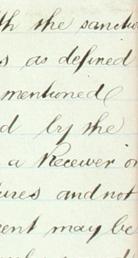 th the sanctio
s as defined
mentioned
d by the
a Receiver or
ures and not
ent may be